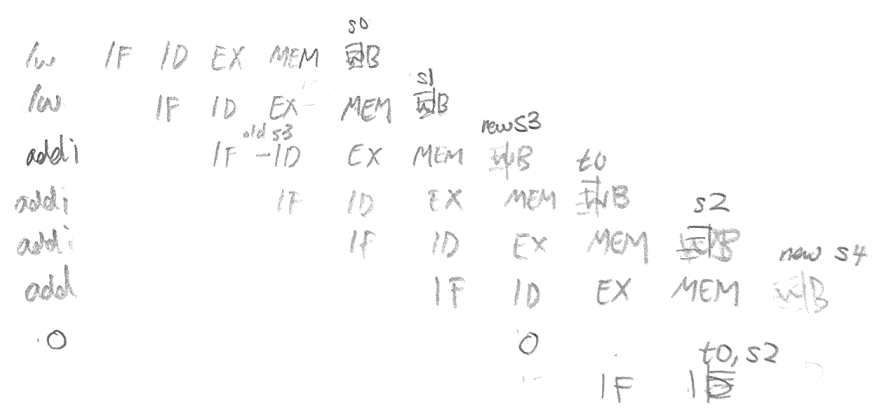 s0
lw IF ID EX MEM WB
s1
lw IF ID EX MEM WB
old s3 new s3
addi IF -ID EX MEM WB t0
addi IF ID EX MEM WB s2
addi IF ID EX MEM WB new s4
add IF ID EX MEM WB
O O t0, s2
IF ID